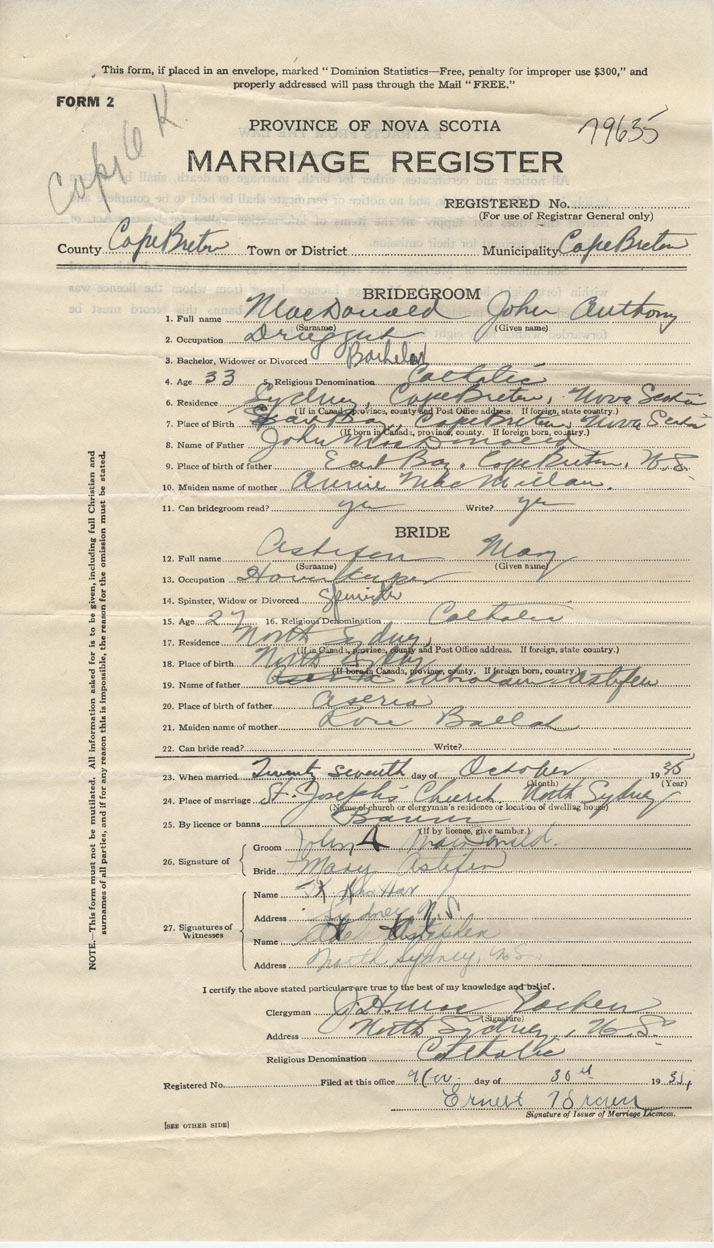 This form, if placed in an envelope, marked "Dominion Statistics—Free, penalty for improper use $300," and
properly addressed will pass through the Mail "FREE."
FORM 2
PROVINCE OF NOVA SCOTIA
79635
MARRIAGE REGISTER
REGISTERED No.
(For use of Registrar General only)
County Cape Breton Town or District Municipality Cape Breton
BRIDEGROOM
1. Full name MacDonald John Anthony
(Surname) (Given name)
2. Occupation Druggist
3. Bachelor, Widower or Divorced Bachelor
4. Age 33 5. Religious Denomination Catholic
6. Residence Sydney, Cape Breton, Nova Scotia
(If in Canada, province, county and Post Office address. If foreign, state country.)
7. Place of Birth East Bay, Cape Breton, Nova Scotia
(If born in Canada, province, county. If foreign born, country.)
8. Name of Father John MacDonald
9. Place of birth of father East Bay, Cape Breton, N.S.
10. Maiden name of mother Annie MacMillan.
11. Can bridegroom read? yes Write? yes
BRIDE
12. Full name Astifen Mary
(Surname) (Given name)
13. Occupation Housekeeper
14. Spinster, Widow or Divorced Spinster
15. Age 27 16. Religious Denomination Catholic
17. Residence North Sydney,
(If in Canada, province, county and Post Office address. If foreign, state country.)
18. Place of birth North Sydney
(If born in Canada, province, county. If foreign born, country.)
19. Name of father Abraham Astifen
20. Place of birth of father
21. Maiden name of mother
22. Can bride read? Write?
23. When married Twenty seventh day of October 19
(Month) (Year)
24. Place of marriage St. Joseph's Church North Sydney
(Name of church or clergyman's residence or location of dwelling house)
25. By licence or banns Banns
(If by licence, give number.)
26. Signature of
Groom John A MacDonald.
Bride Mary Astifen
27. Signatures of
Witnesses
Name
Address Sydney N.S.
Name
Address North Sydney, N.S.
I certify the above stated particulars are true to the best of my knowledge and belief.
Clergyman
(Signature)
Address North Sydney, N.S.
Religious Denomination Catholic
Registered No. Filed at this office Nov. day of 30th 19
Ernest
Signature of Issuer of Marriage Licences.
[SEE OTHER SIDE]
NOTE.—This form must not be mutilated. All information asked for is to be given, including full Christian and
surnames of all parties, and if for any reason this is impossible, the reason for the omission must be stated.